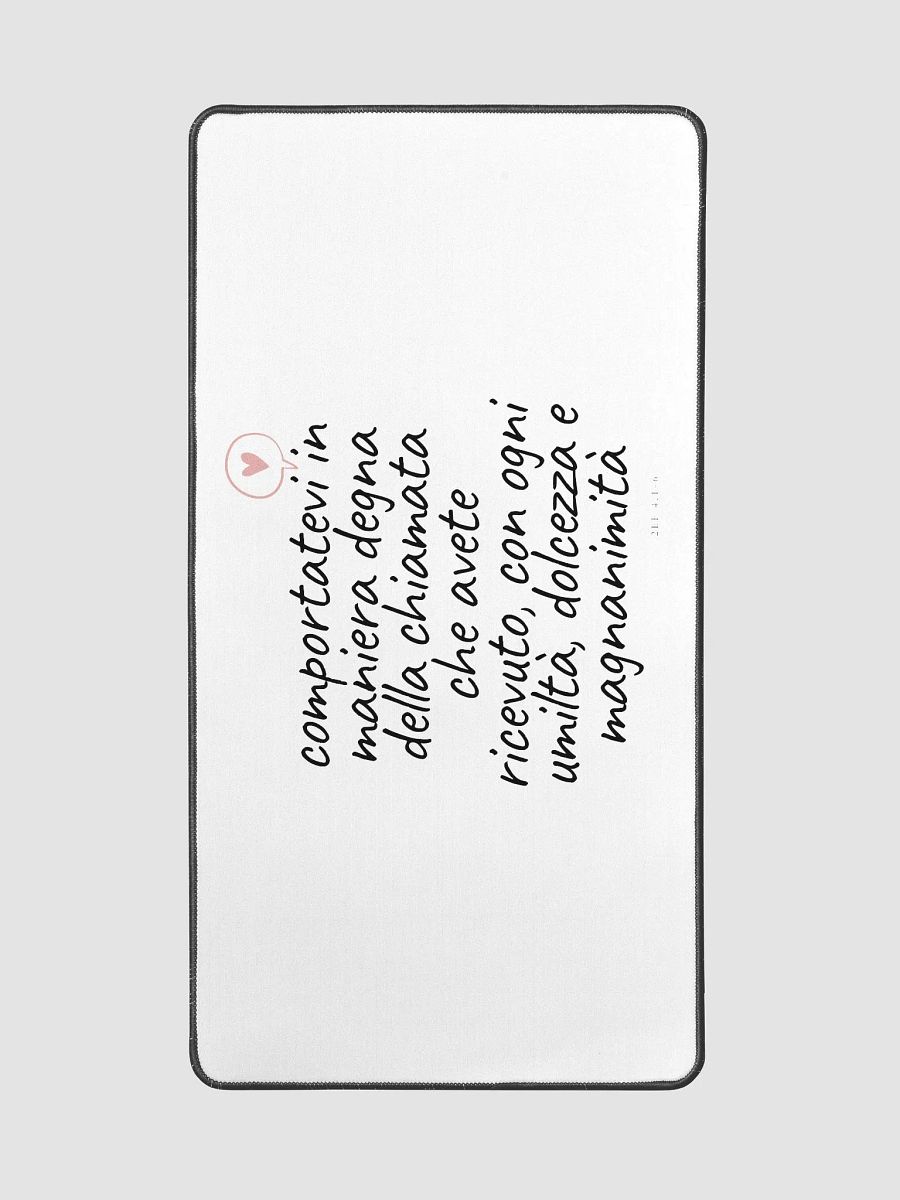 comportatevi in
maniera degna
della chiamata
che avete
ricevuto, con ogni
umiltà, dolcezza e
magnanimità